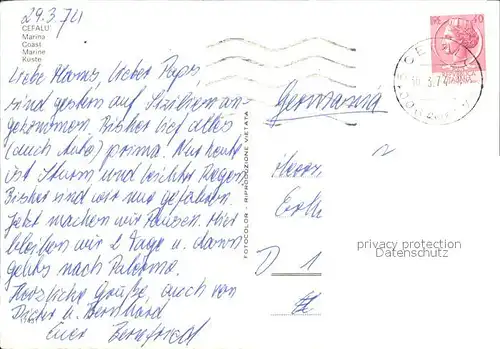 29.3.74
CEFALÙ
Marina
Coast
Marine
Küste
Liebe Mams, lieber Paps
sind gestern auf Sizilien an-
gekommen. Bisher lief alles
(auch Auto) prima. Nur heute
ist Sturm und leichter Regen.
Bisher sind wir nur gefahren.
Jetzt machen wir Pausen. Hier
bleiben wir 2 Tage u. dann
gehts nach Palermo.
Herzliche Grüße, auch von
Dieter u. Bernhard
Euer Bernfried
FOTOCOLOR - RIPRODUZIONE VIETATA
Germania
Herrn
D 1
privacy protection
Datenschutz